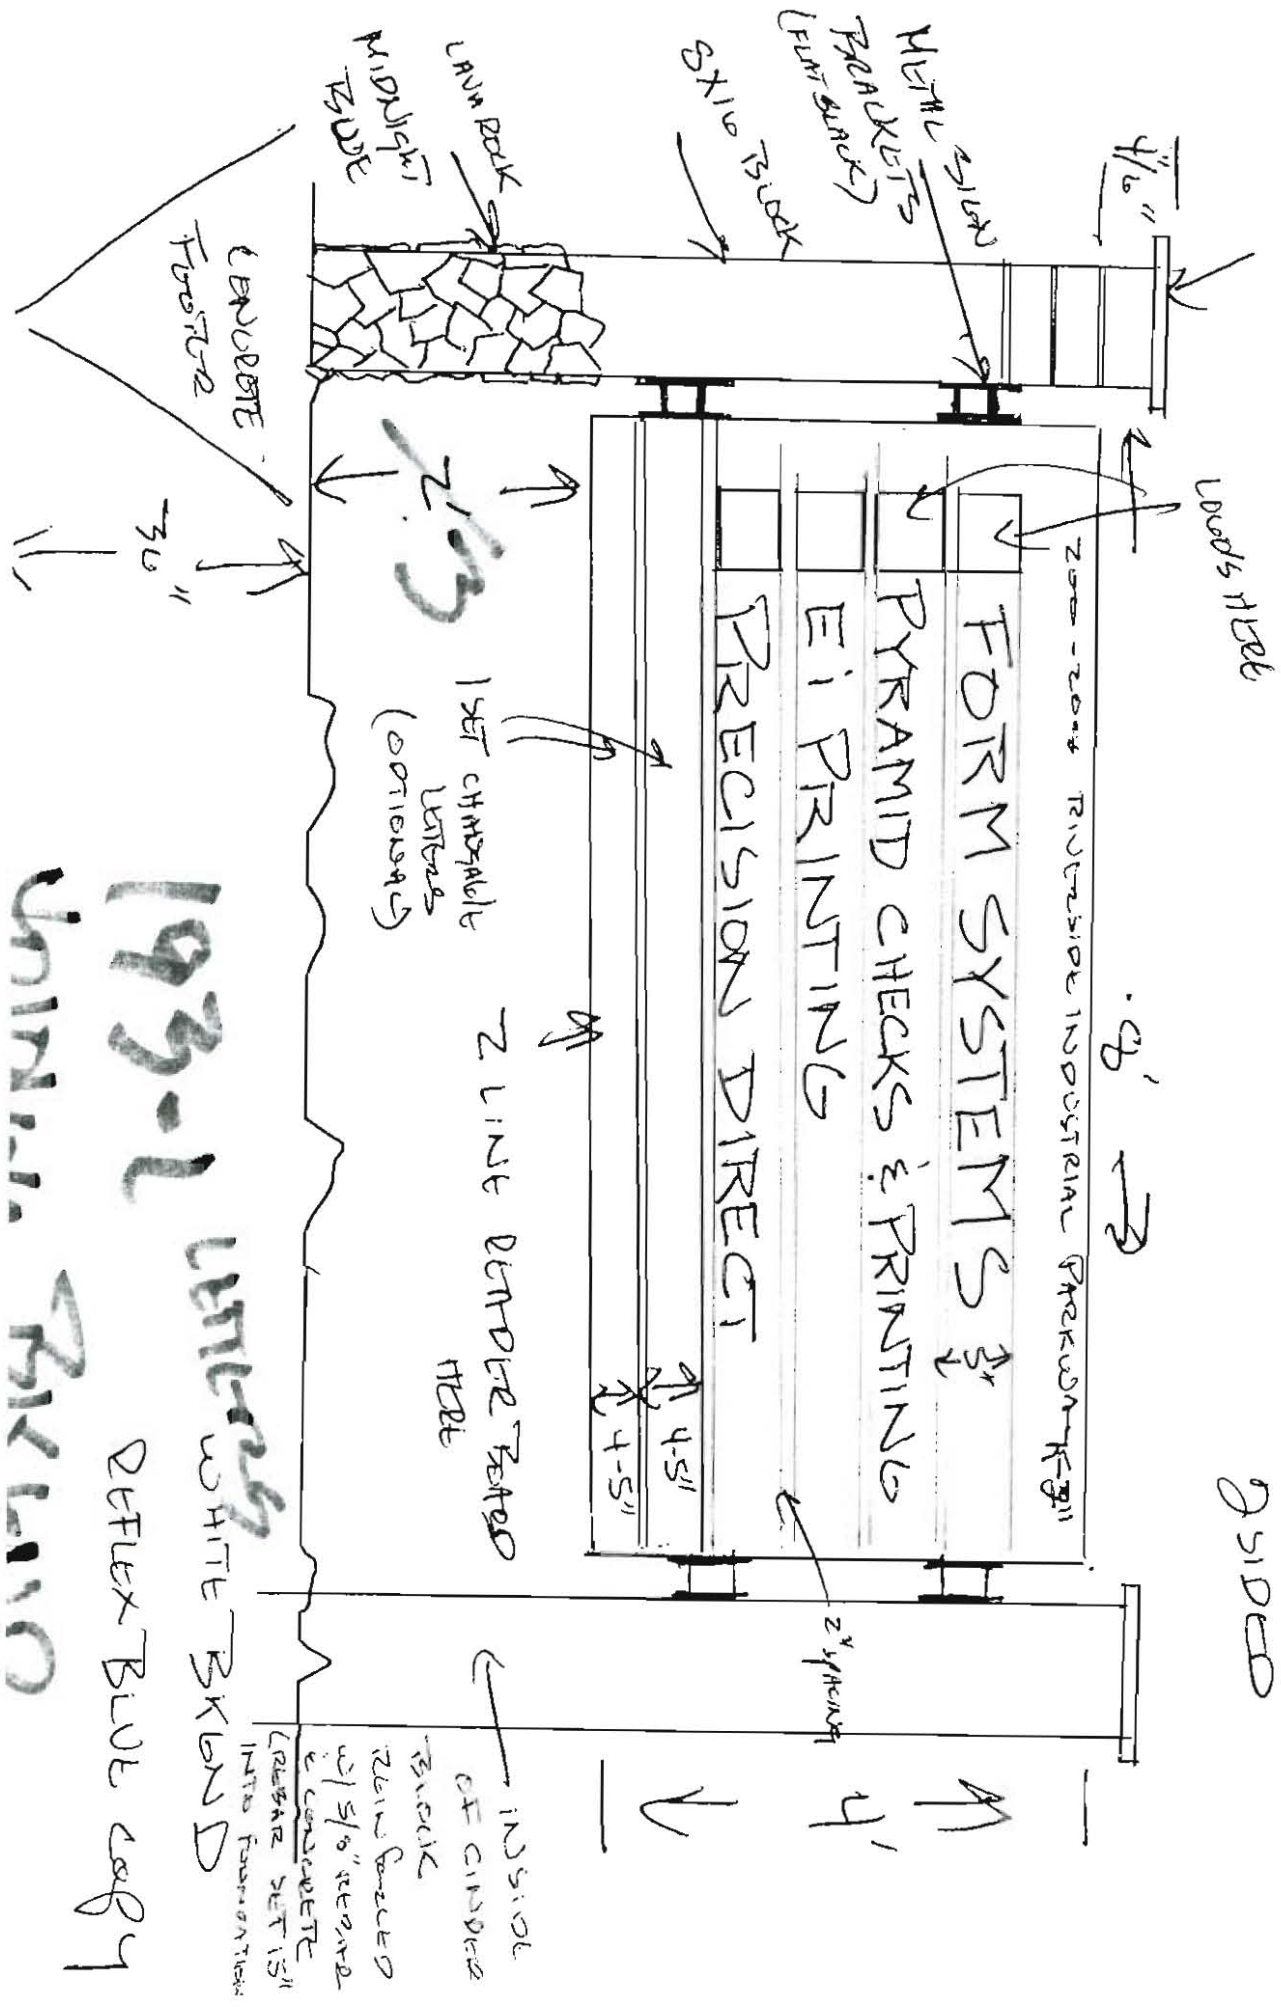 2 SIDED
8'
4/6"
METAL SIGN
BRACKETS
(FLAT BLACK)
8X16 BLOCK
LAVA ROCK
MIDNIGHT
BLUE
LOGO'S HERE
RIVERSIDE INDUSTRIAL PARKWAY
3"
FORM SYSTEMS 5"
PYRAMID CHECKS & PRINTING
Ei PRINTING
PRECISION DIRECT
2" SPACING
4'
4-5"
4-5"
2 LINE READER BOARD
HERE
1 SET CHANGABLE
LETTERS
(OPTIONAL)
CONCRETE
FOOTER
36"
INSIDE
OF CINDER
BLOCK
REINFORCED
W/ 5/8" REBAR
& CONCRETE
(REBAR SET 15"
INTO FOUNDATION
193-L LETTERS
WHITE BKGND
REFLEX BLUE COPY